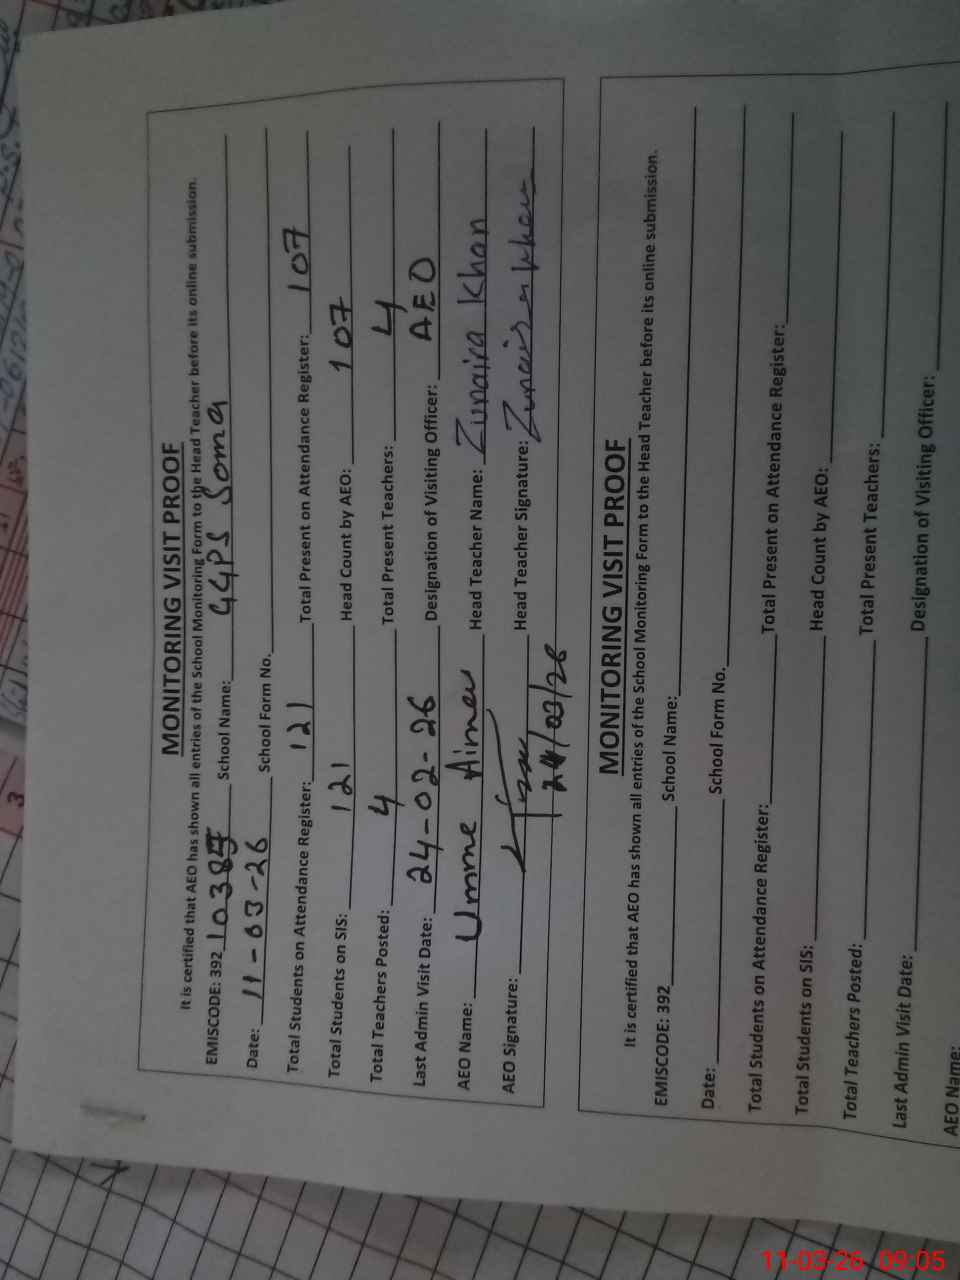 MONITORING VISIT PROOF
It is certified that AEO has shown all entries of the School Monitoring Form to the Head Teacher before its online submission.
EMISCODE: 392 School Name: GGPS Soma
Date: 11-03-26 School Form No.
Total Students on Attendance Register: 121 Total Present on Attendance Register: 107
Total Students on SIS: 121 Head Count by AEO: 107
Total Teachers Posted: 4 Total Present Teachers: 4
Last Admin Visit Date: 24-02-26 Designation of Visiting Officer: AEO
AEO Name: Umme Aimen Head Teacher Name: Zunaira Khan
AEO Signature: Head Teacher Signature: Zunaira Khan
MONITORING VISIT PROOF
It is certified that AEO has shown all entries of the School Monitoring Form to the Head Teacher before its online submission.
EMISCODE: 392 School Name:
Date: School Form No.
Total Students on Attendance Register: Total Present on Attendance Register:
Total Students on SIS: Head Count by AEO:
Total Teachers Posted: Total Present Teachers:
Last Admin Visit Date: Designation of Visiting Officer:
AEO Name:
11-03-26 09:05